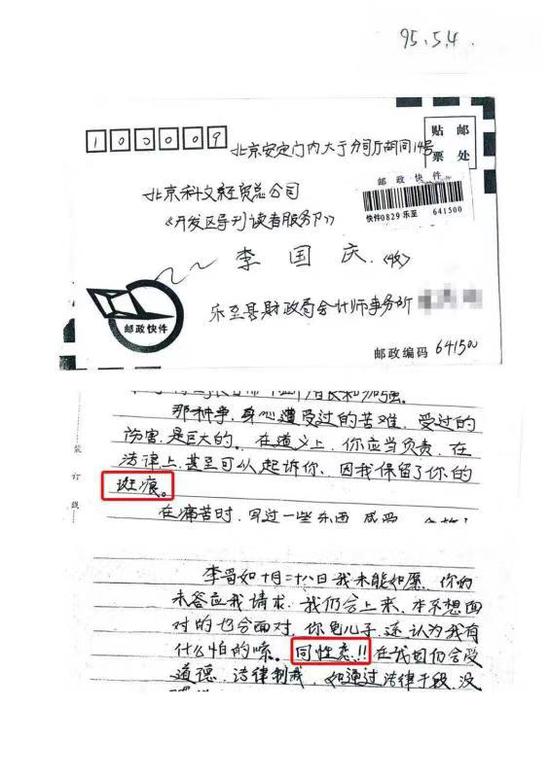 95.5.4.
100009
贴邮
票处
北京安定门内大于分司厅胡同14号
邮政快件
北京科文经贸总公司
快件0829 乐至 641500
《开发区导刊读者服务部》
李国庆（收）
邮政快件
乐至县财政局会计师事务所
邮政编码 641500
那种事，身心遭受过的苦难，受过的
伤害，是巨大的。在道义上，你应当负责，在
法律上，甚至可以起诉你，因我保留了你的
斑痕。
装订线
在痛苦时，写过一些东西
李哥如十月二十八日我未能如愿，你的
未答应我请求，我仍会上来，本不想面
对的也会面对，你龟儿子，还认为我有
什么怕的嗦。同性恋!!在我国仍会受
道德、法律制裁，如通过法律手段，没